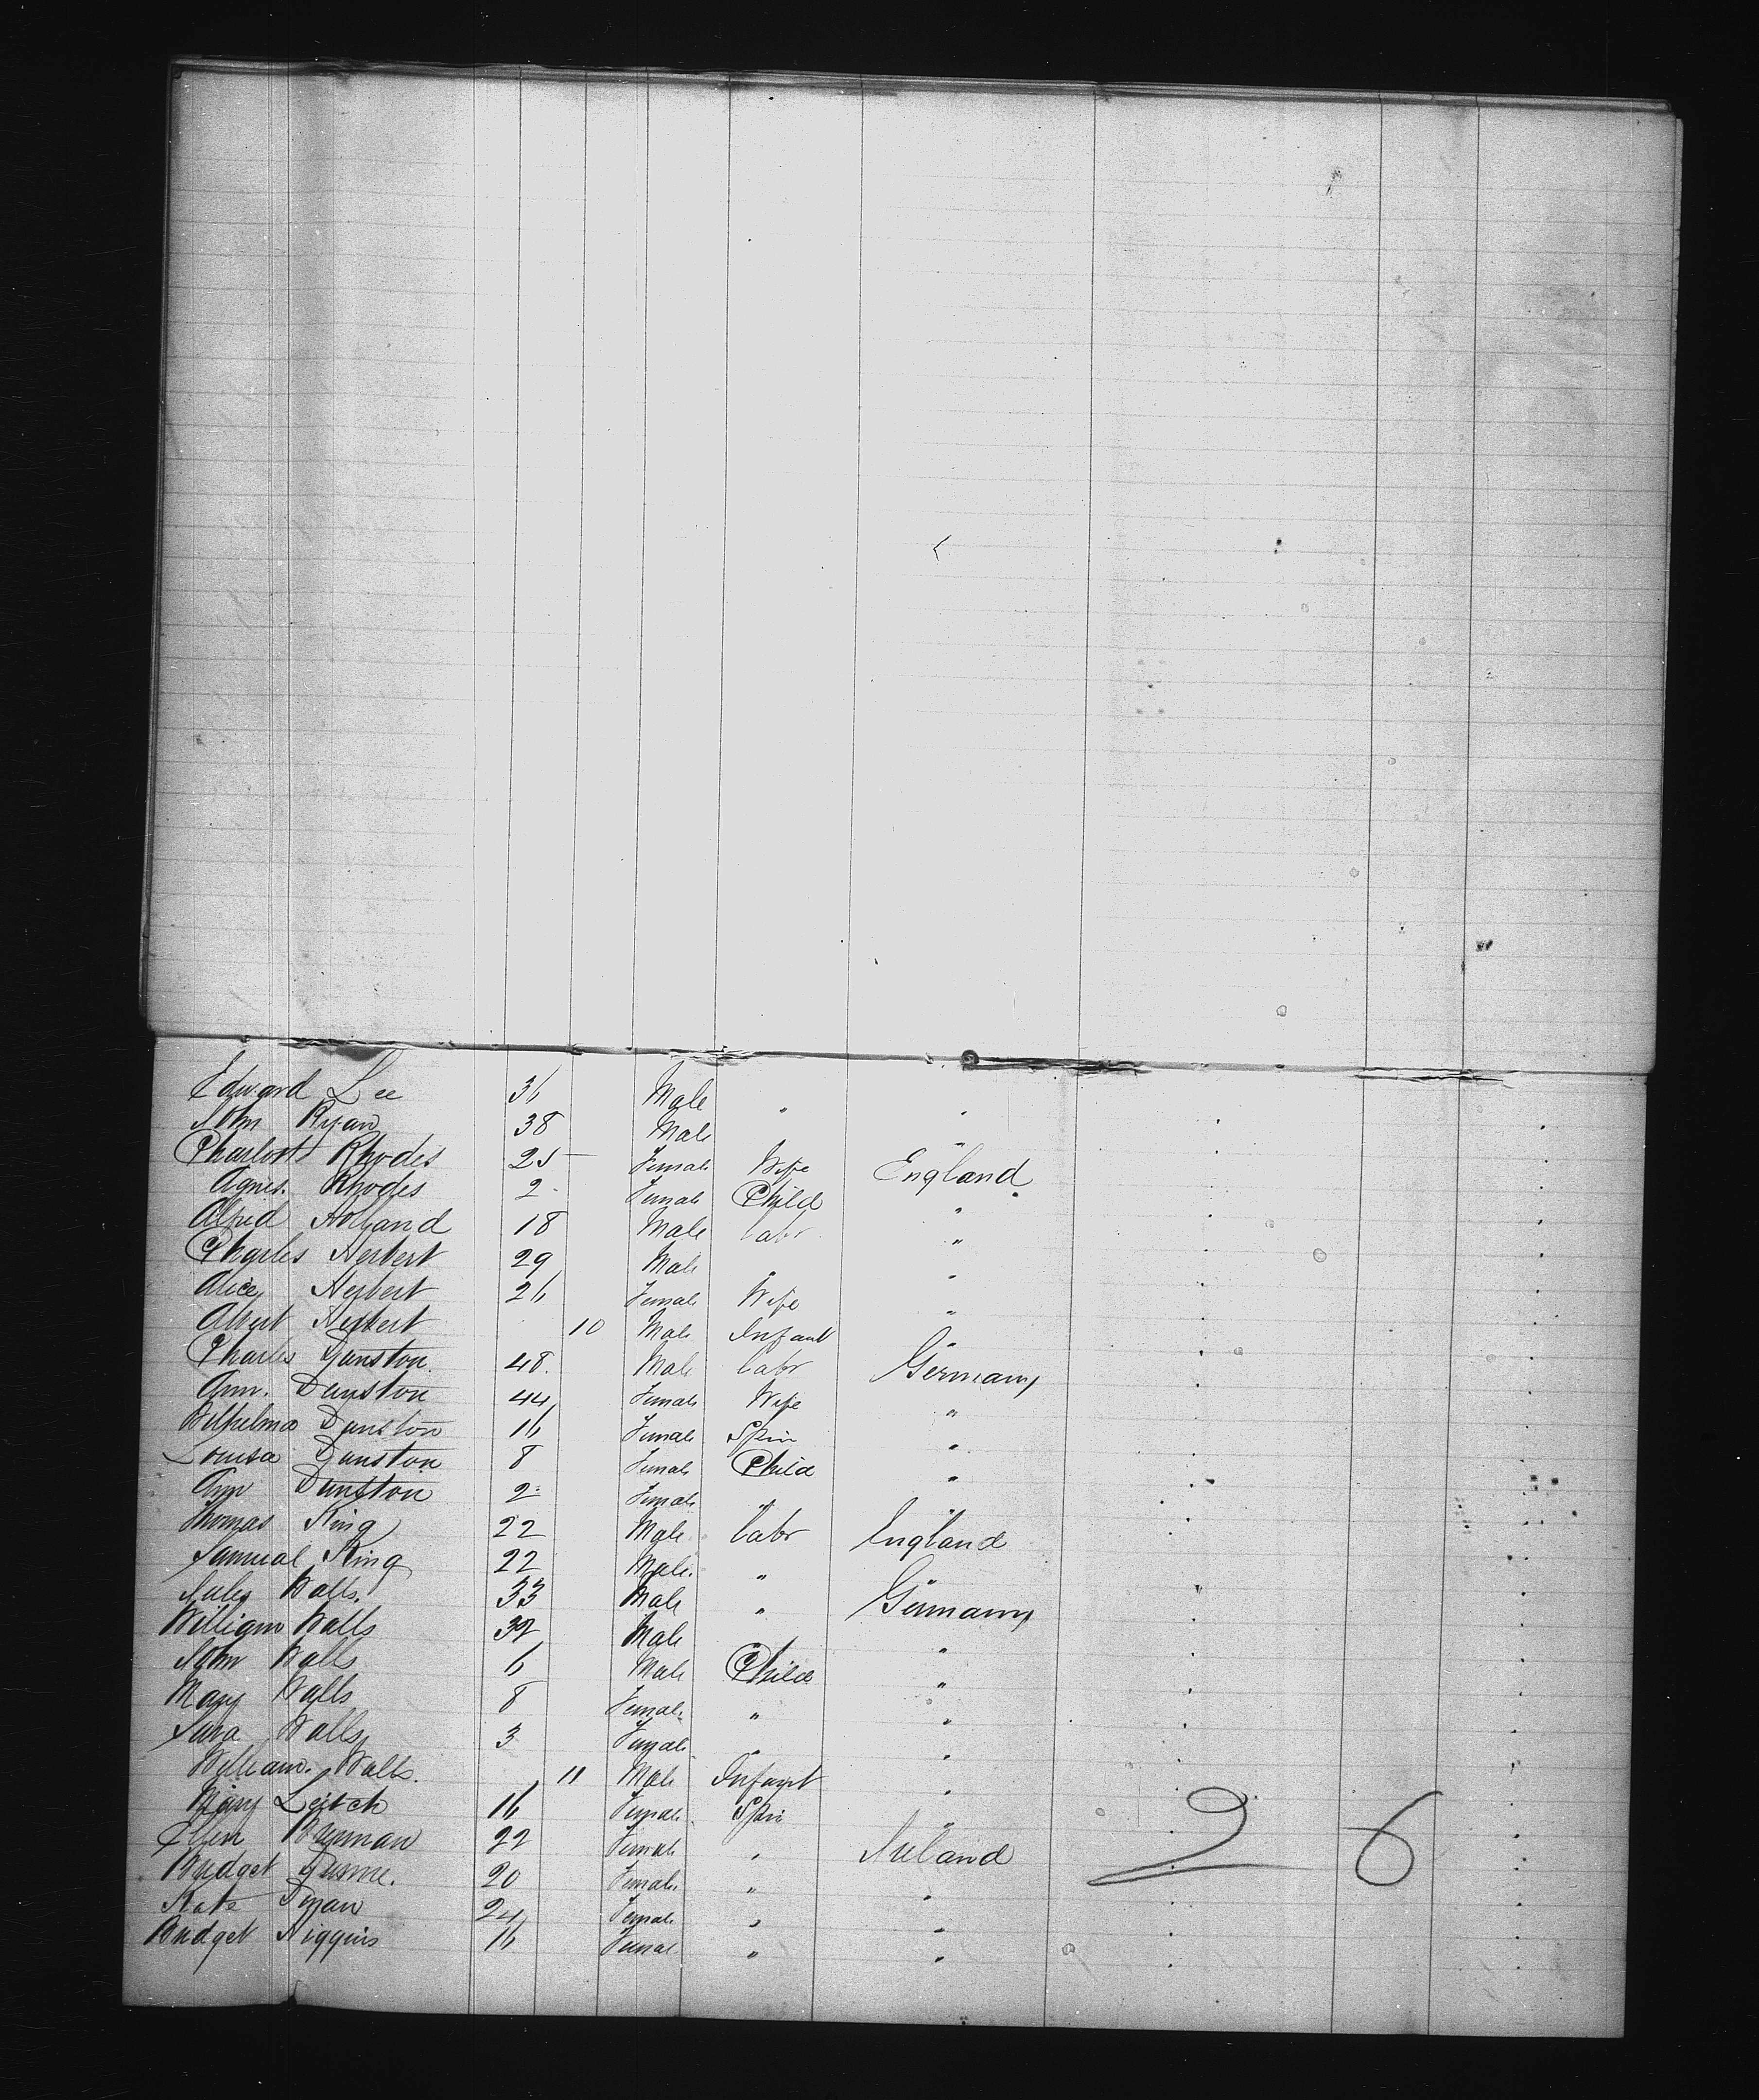 Edward Lee 36 Male "  "
John Ryan 38 Male "
Charlott Rhodes 25 Female Wife England
Agnes. Rhodes 2 Female Child "
Alfred Holland 18 Male Labr "
Charles Herbert 29 Male " "
Alice Herbert 26 Female Wife "
Albert Herbert 10 Male Infant "
Charles Dunston. 48. Male Labr Germany
Ann. Dunston 44 Female Wife "
Wilhelma Dunston 16 Female Spin "
Louisa Dunston 8 Female Child "
Ann Dunston 2 Female " "
Thomas King 22 Male Labr England
Samual King 22 Male. " "
Walls. 33 Male " Germany
William Walls 32 Male " "
John Walls 6 Male Child "
Mary Walls 8 Female " "
Sara Walls 3 Female " "
William. Walls. 11 Male Infant "
Mary Leitch 16 Female Spin "
Ellen Brennan 22 Female " Ireland
Bridget 20 Female " "
Kate 24 Female " "
Bridget Higgins 16 Female " "
26